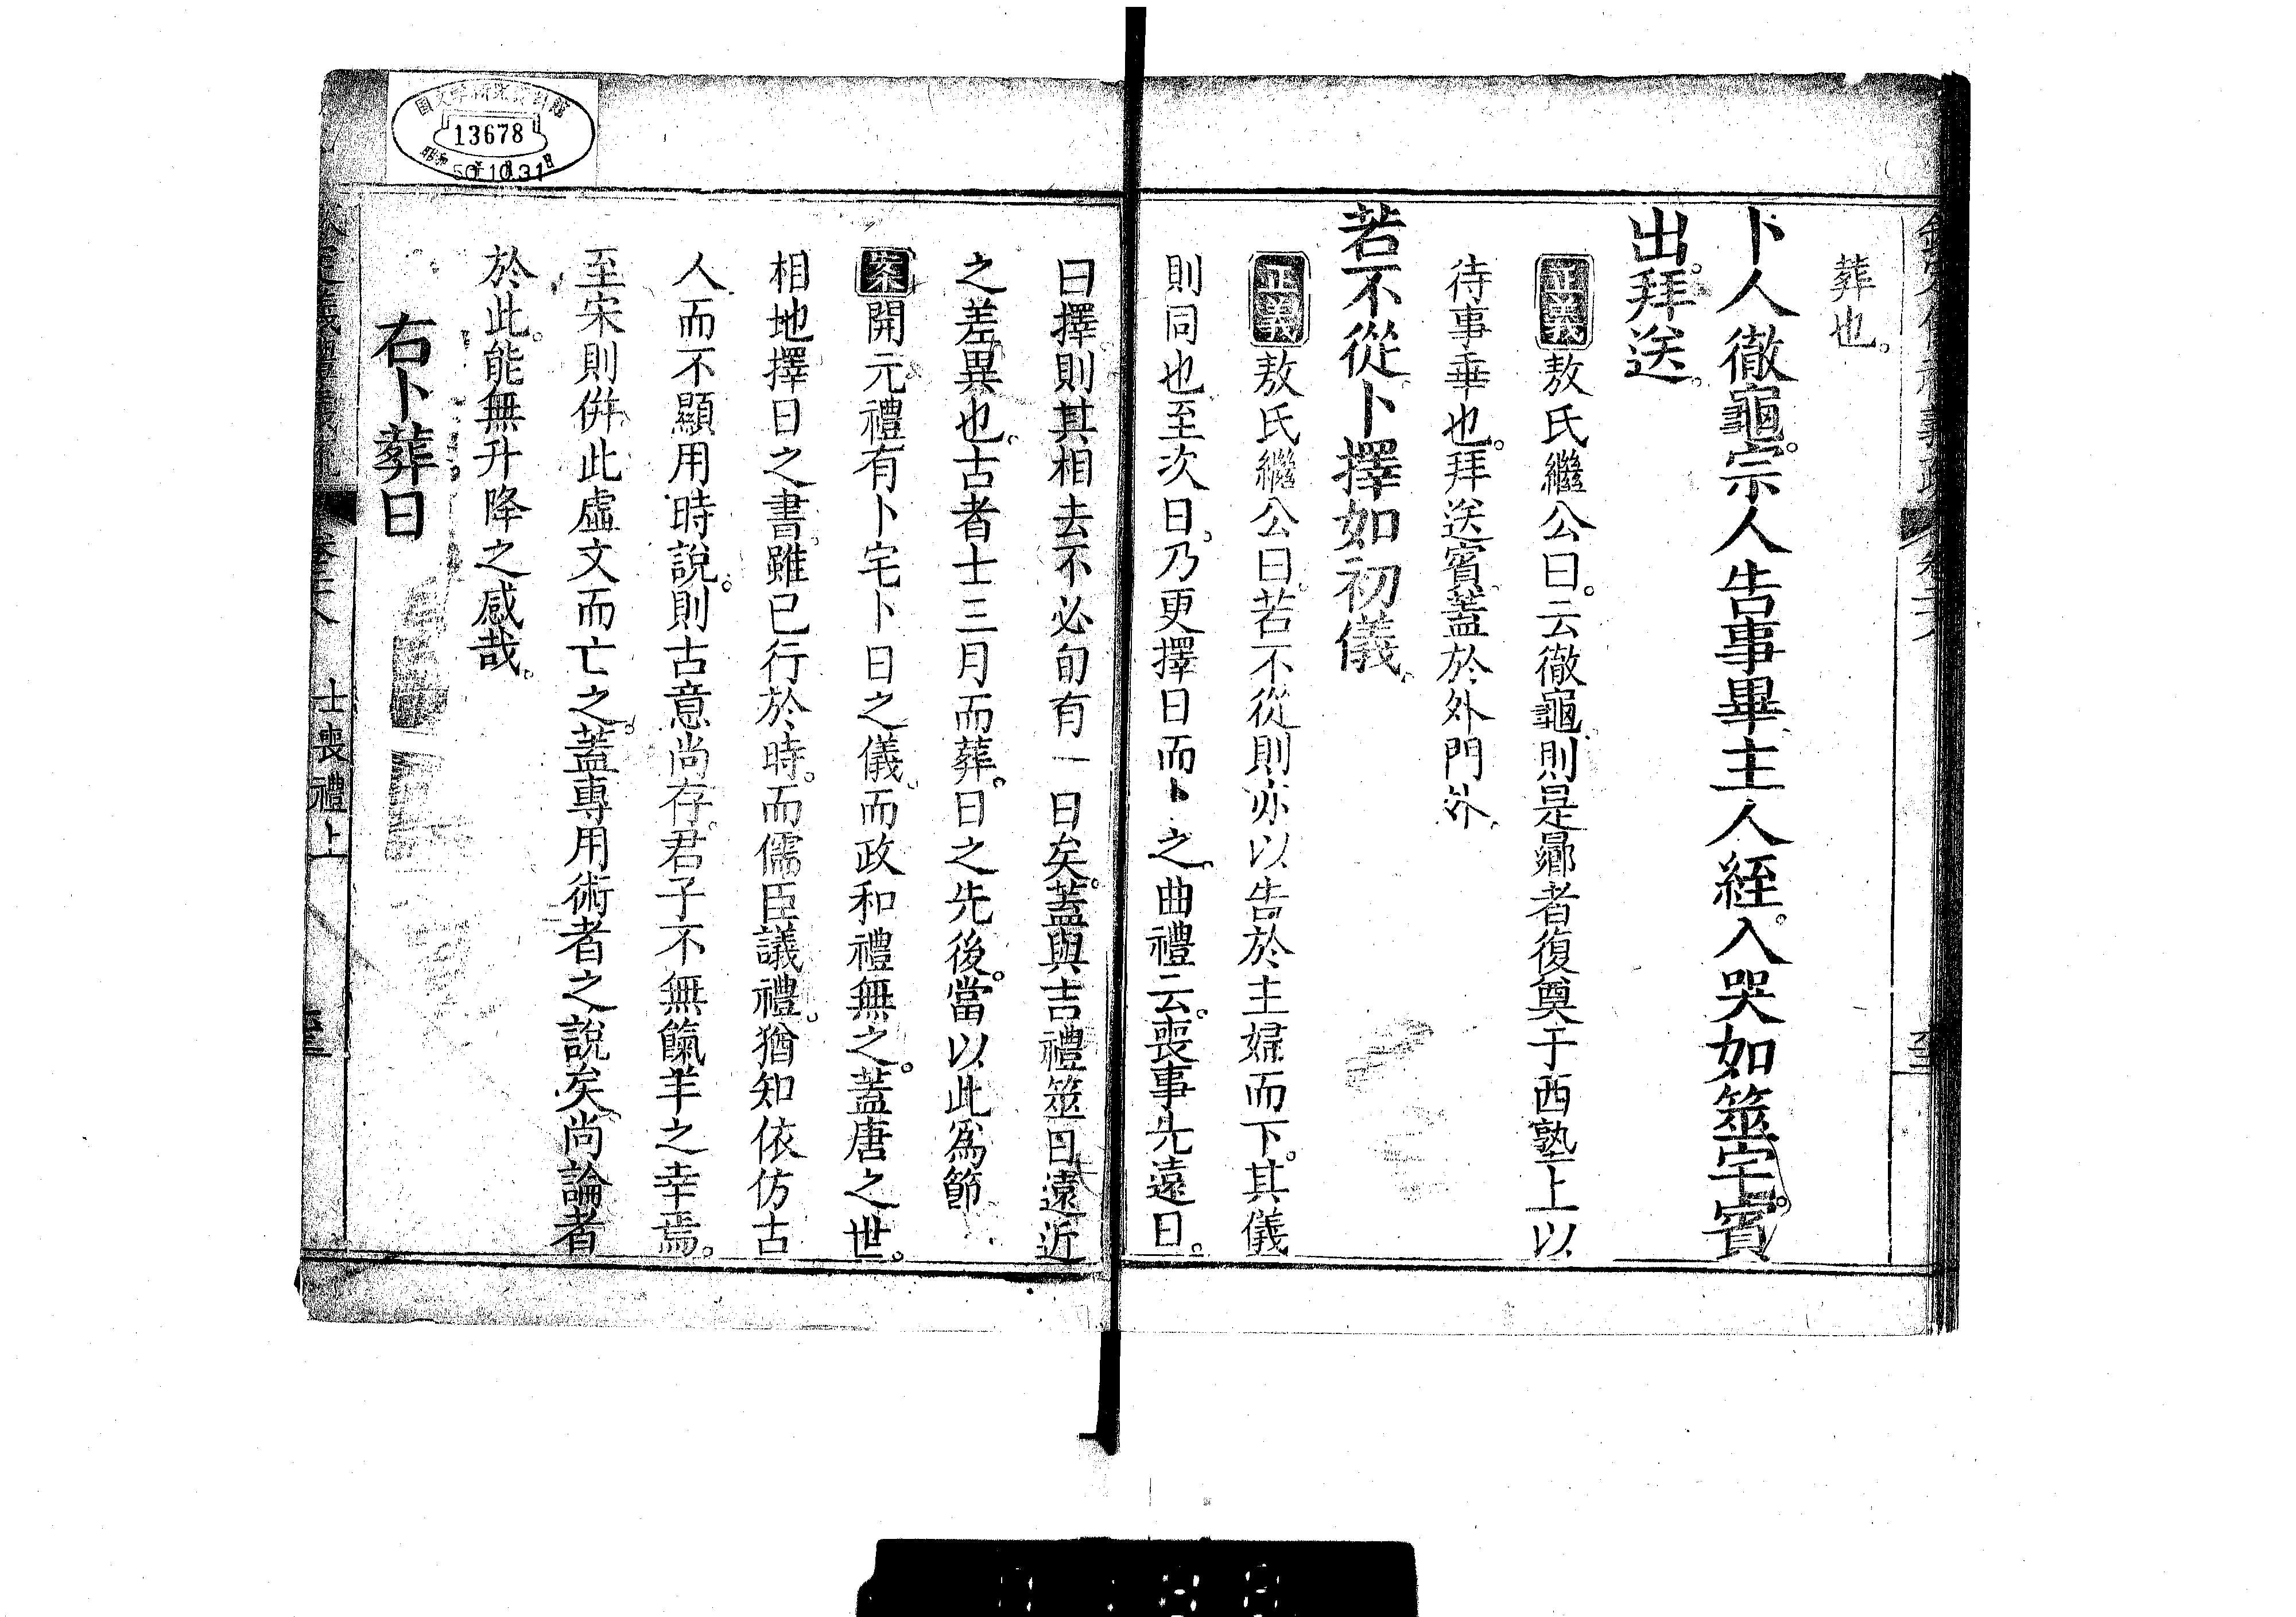 葬也。
卜人徹龜。宗人告事畢主人絰。入哭如筮宅。賓
出。拜送。
正義敖氏繼公曰。云徹龜則是曏者復奠于西塾上以
待事畢也。拜送賓蓋於外門外。
若不從卜擇如初儀。
正義敖氏繼公曰。若不從則亦以告於主婦而下。其儀
則同也至次日。乃更擇日而卜之。曲禮云。喪事先遠日。
曰擇則其相去不必旬有一日矣。蓋與吉禮筮日遠近
之差異也。古者士三月而葬。日之先後。當以此爲節
案開元禮有卜宅卜日之儀。而政和禮無之。蓋唐之世。
相地擇日之書。雖已行於時。而儒臣議禮。猶知依仿古
人而不顯用時說。則古意尚存。君子不無餼羊之幸焉。
至宋則併此虛文而亡之。蓋專用術者之說矣。尚論者
於此。能無升降之感哉。
右卜葬日
士喪禮上
13678
50.10.31